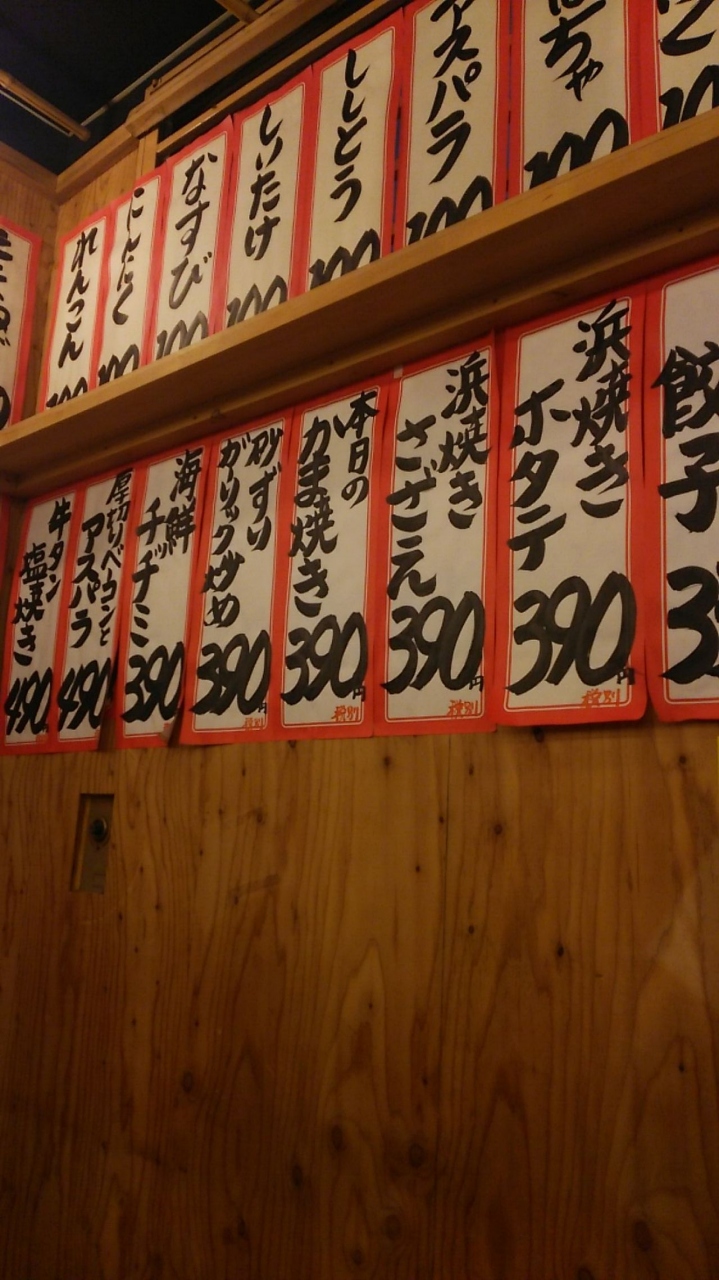 れんこん
100
にんにく
100
なすび
100
しいたけ
100
ししとう
100
アスパラ
100
ちゃ
100
牛タン
塩焼き
490
厚切りベーコンと
アスパラ
490
海鮮
チヂミ
390
砂ずり
ガリック炒め
390円
税別
本日の
かま焼き
390円
税別
浜焼き
さざえ
390円
税別
浜焼き
ホタテ
390円
税別
餃子